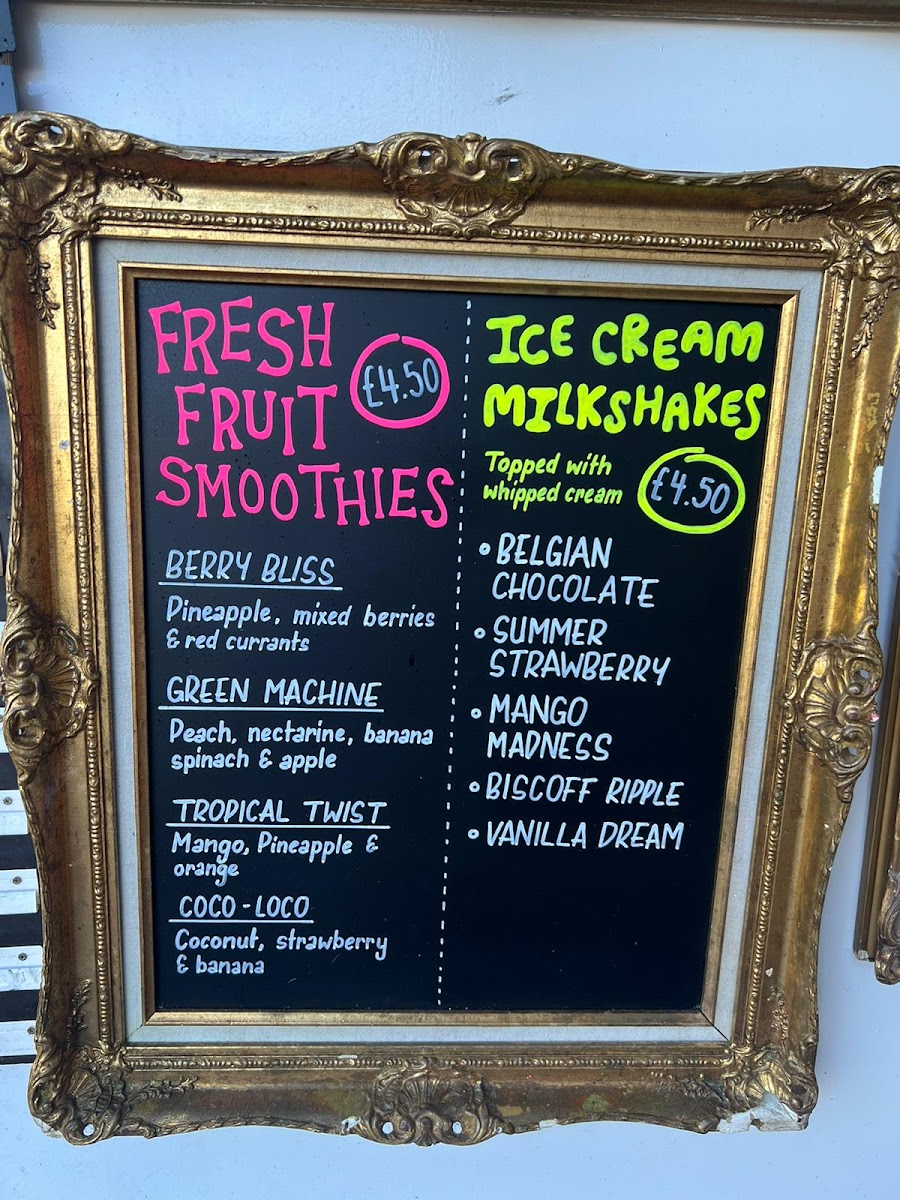 FRESH
FRUIT
SMOOTHIES
£4.50
BERRY BLISS
Pineapple, mixed berries
& red currants
GREEN MACHINE
Peach, nectarine, banana
spinach & apple
TROPICAL TWIST
Mango, Pineapple &
orange
COCO-LOCO
Coconut, strawberry
& banana
ICE CREAM
MILKSHAKES
Topped with
whipped cream
£4.50
• BELGIAN
CHOCOLATE
• SUMMER
STRAWBERRY
• MANGO
MADNESS
• BISCOFF RIPPLE
• VANILLA DREAM